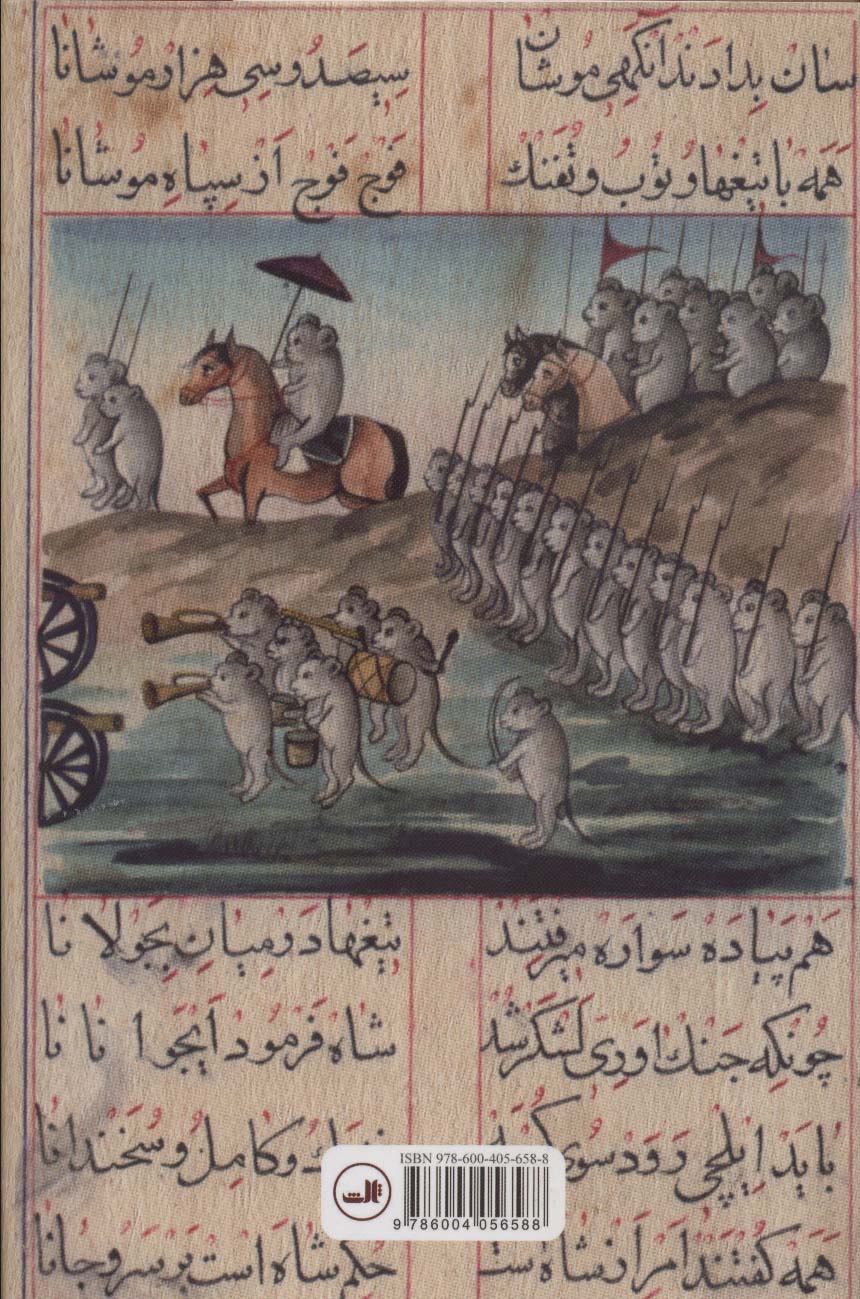 سان بدادند آنگهی موشان سیصد و سی هزار موشانا
همه با تیغها و توب و تفنك فوج فوج از سپاه موشانا
هم پیاده سواره میرفتند تیغها در میان بجولانا
چونکه جنك اوری لشکر شد شاه فرمود ایجوانانا
باید ایلچی رود سوی وکامل و سخندانا
همه کفتند امر از شاه است حکم شاه است بر سر و جانا
ISBN 978-600-405-658-8
ثالث
9 786004 056588